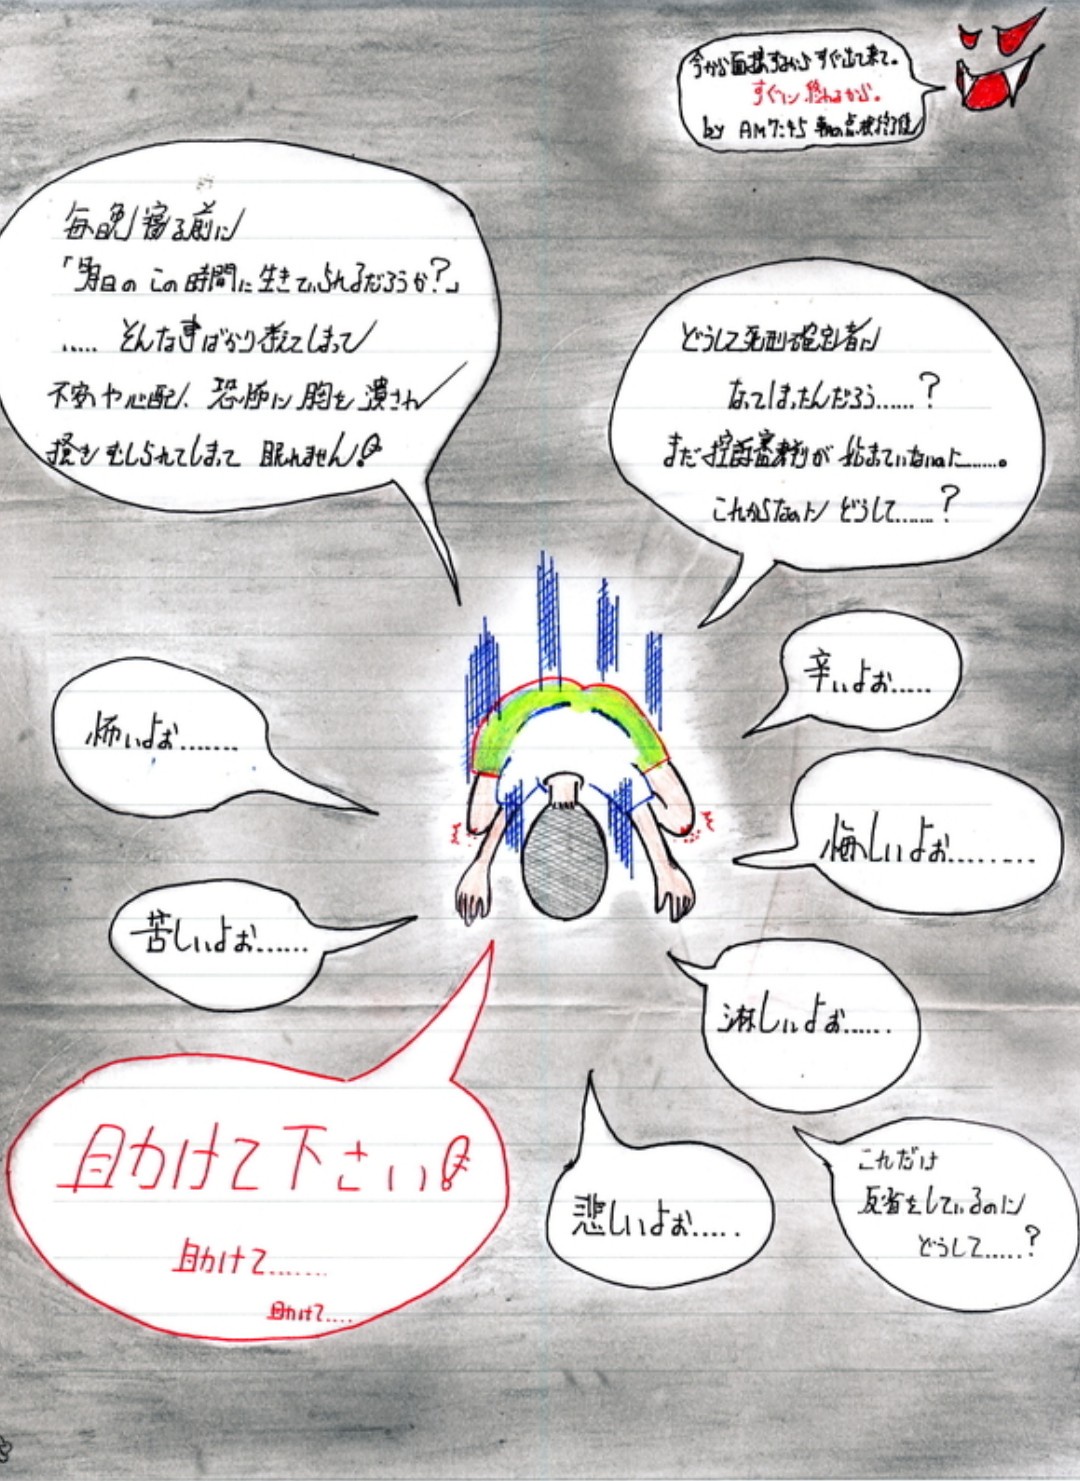 今から面接するからすぐ出て来て。
すぐに終わるから。
by AM7:45 朝の点検終了後
毎晩寝る前に
「明日のこの時間に生きていられるだろうか?」
..... そんな事ばかり考えてしまって
不安や心配、恐怖に胸を潰され
掻きむしられてしまって 眠れません!
どうして死刑確定者に
なってしまったんだろう......?
まだ控訴審裁判が始まっていないのに......。
これからなのに どうして......?
辛いよぉ.....
怖いよぉ.......
悔しいよぉ........
苦しいよぉ......
淋しいよぉ......
助けて下さい!
助けて.......
助けて....
悲しいよぉ.....
これだけ
反省をしているのに
どうして.....?